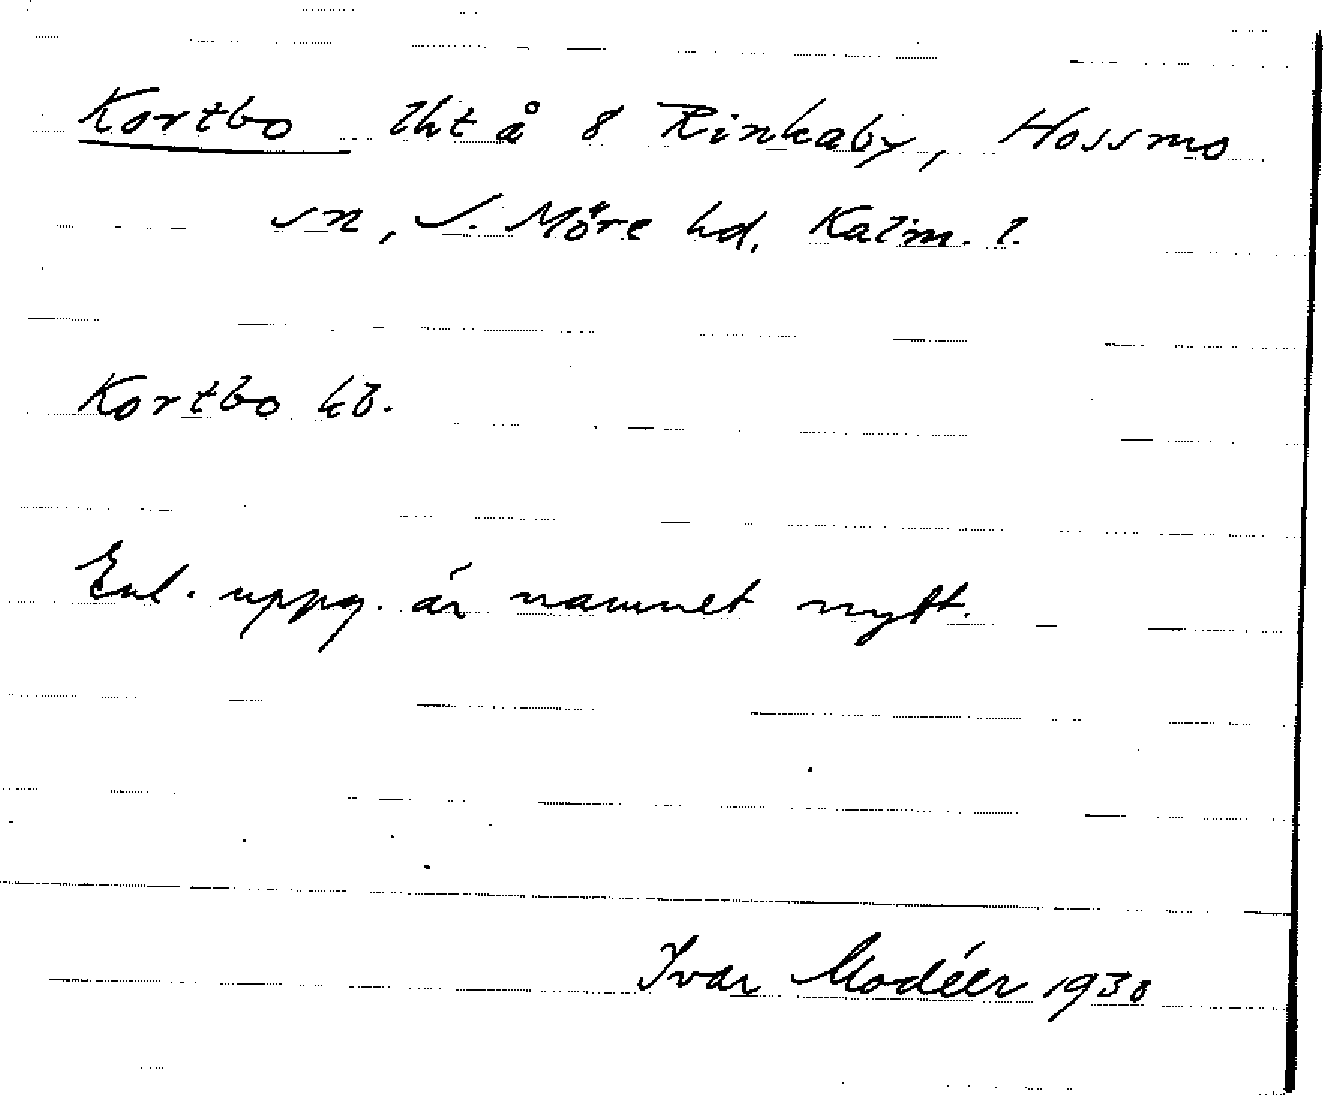 Kortbo lht å 8 Rinkaby, Hossmo
sn, S. Möre hd. Kalm. l.
Kortbo kb.
Enl. uppg. är namnet nytt.
Ivar Modéer 1930